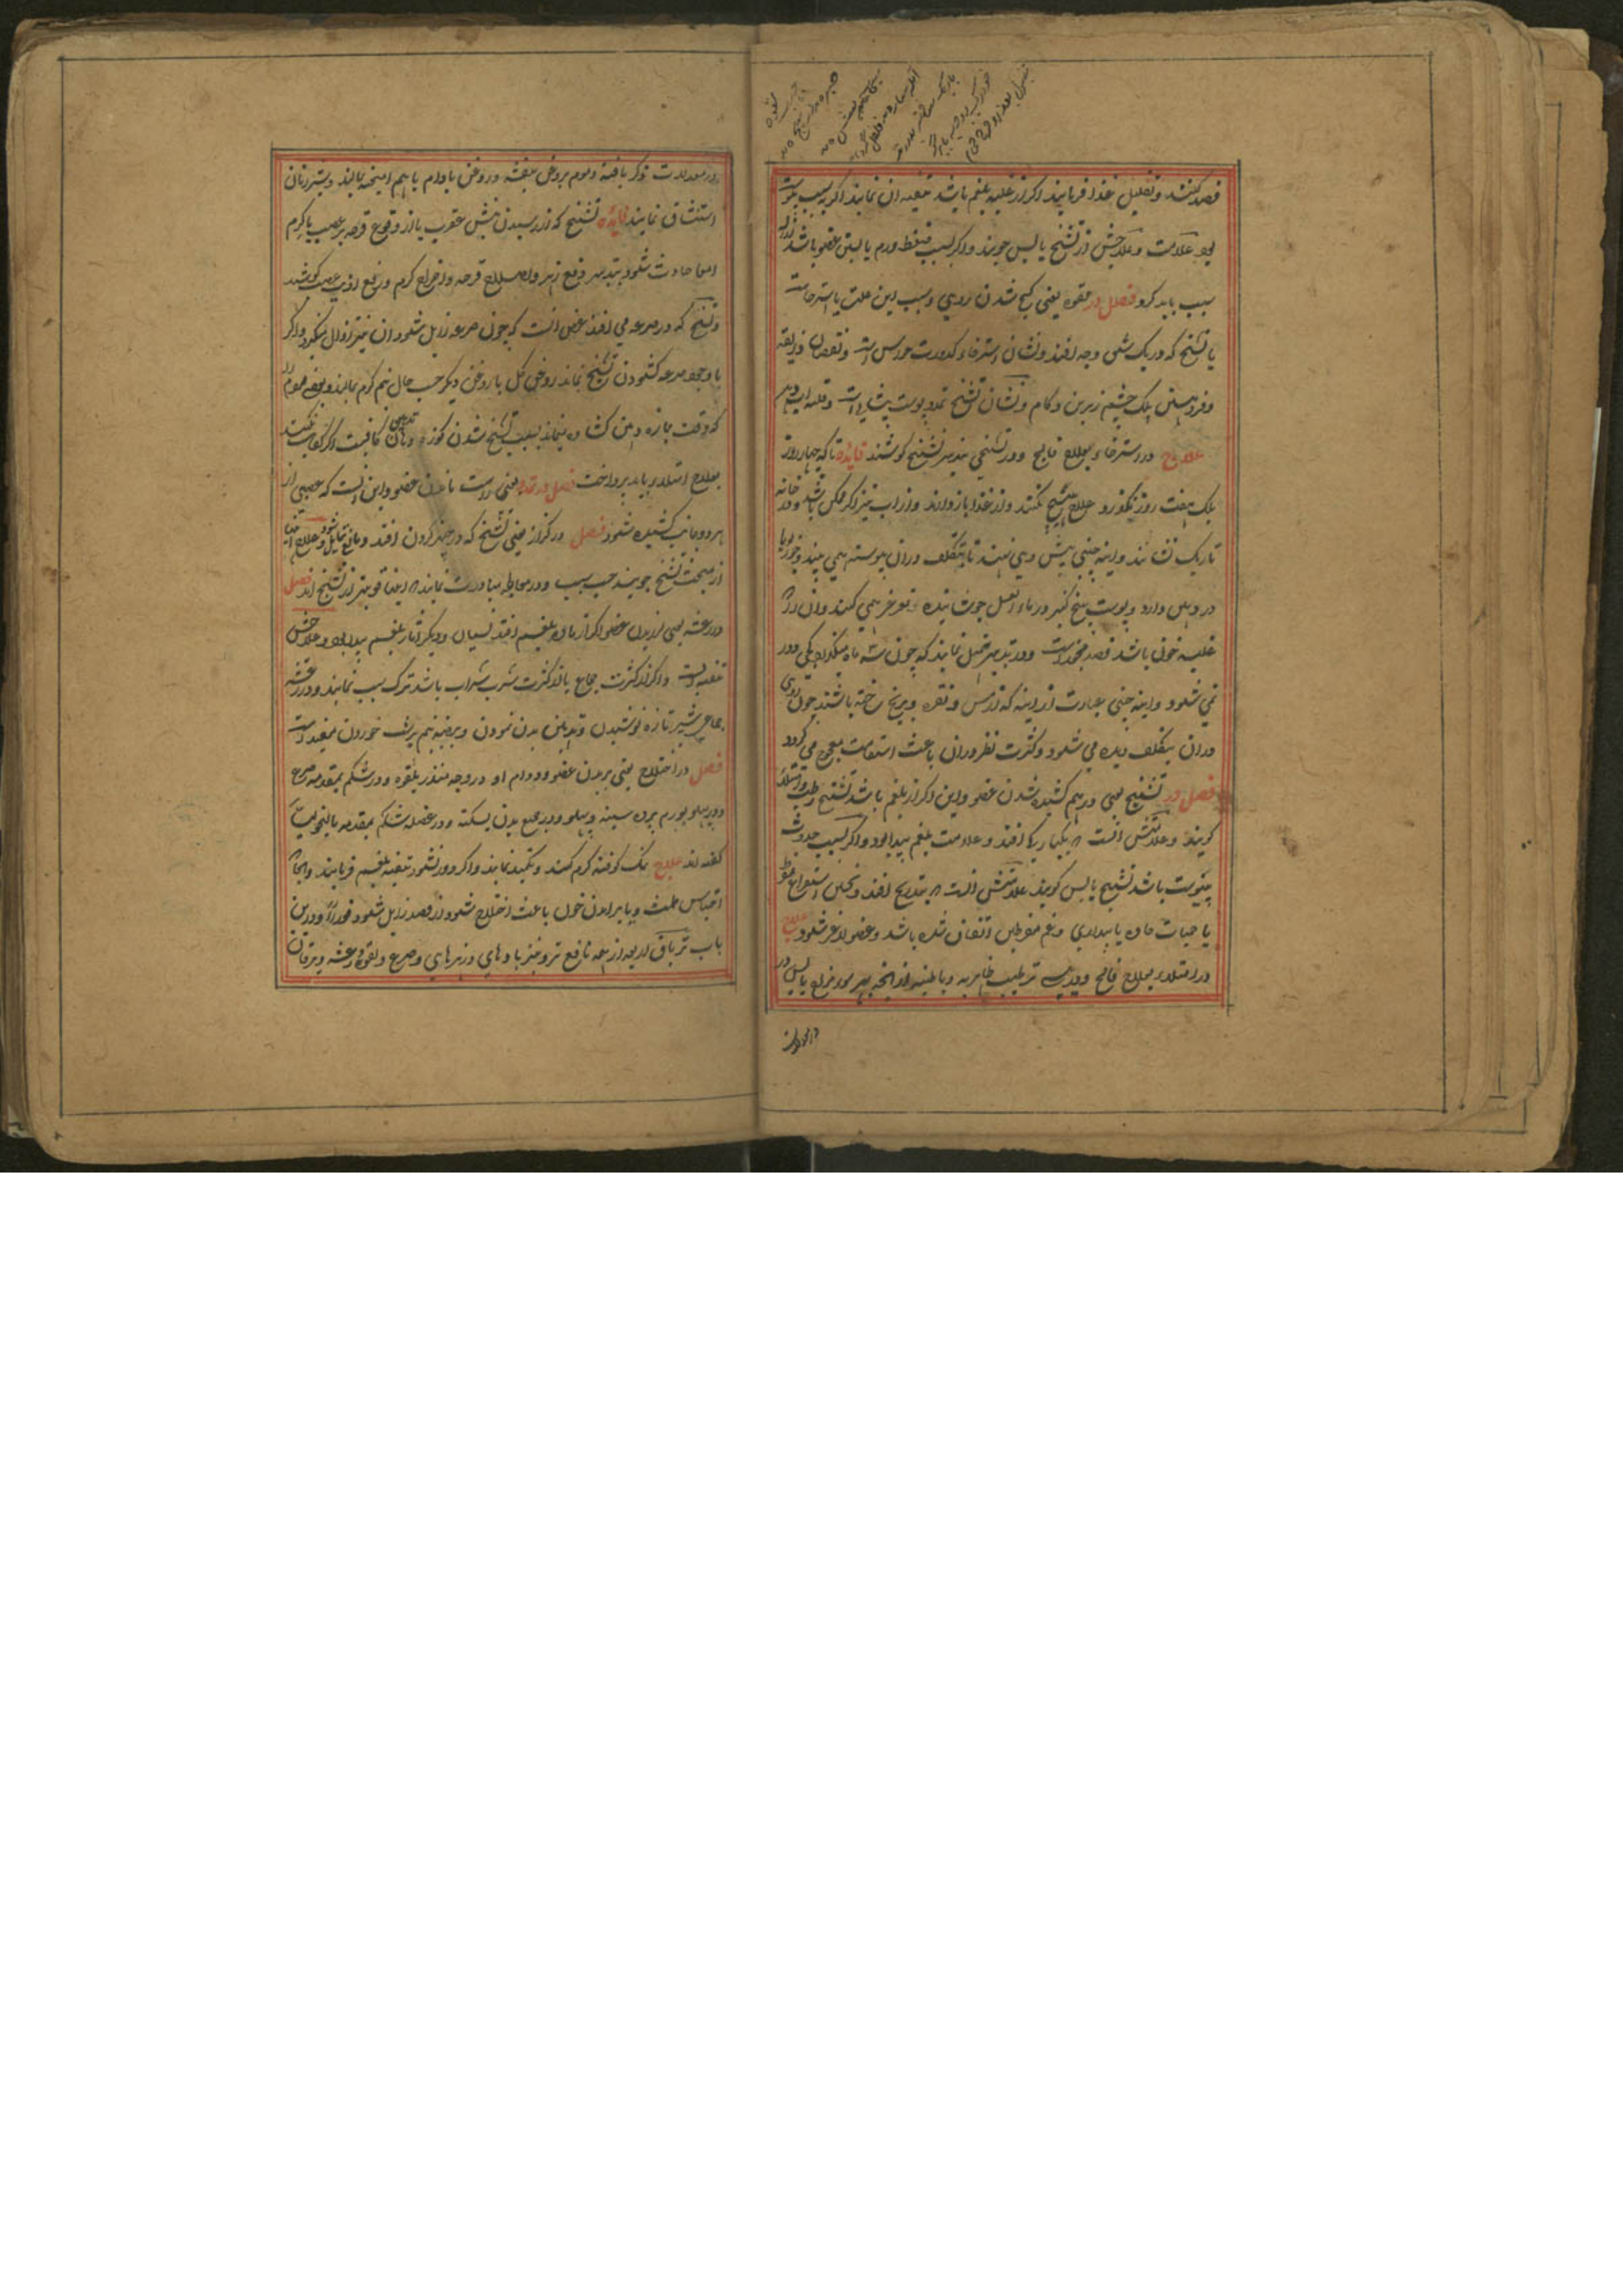 فصد کنند و تقلیل غذا فرمایند اگر از غلبه بلغم باشد تنقیه ان نمایند اگر بسبب یبوست
بود علامت و علاجش از تشنج یابس جویند و اگر بسبب ضغط ورم یا بستن عضو باشد ازاله
سبب باید کرد فصل در لقوه یعنی کج شدن روی و سبب این علت یا استرخاست
یا تشنج که در یک شق وجه افتد و نشان استرخاء کدورت حواس است و نقصان ذایقه
و فروهشتن پلک چشم زیرین و کام و نشان تشنج تمدد پوست پیشانی است و قلت اب دهن
علاج در استرخاء بعلاج فالج و در تشنجی بتدبیر تشنج کوشند فایده تا که چهار روز
بلک هفت روز نگذرد علاج هیچ نکنند و از غذا باز دارند و از اب نیز اگر ممکن باشد و در خانه
تاریک نشانند و اینه چینی پیش وی نهند تا بتکلف دران پیوسته همی بیند و جوزبویا
در دهن دارد و پوست بیخ کبر در ماء العسل جوشانیده غرغره همی کند و اگر
غلبه خون باشد فصد مجوز است و در تدبیر تعجیل نمایند که چون شش ماه بگذرد کجی دور
نمی شود و اینه چینی عبارت از اینه که از مس و نقره و برنج ساخته باشند چون روی
دران بتکلف دیده می شود و کثرت نظر دران باعث استقامت معوج می گردد
فصل در تشنج یعنی در هم کشیده شدن عضو و این اگر از بلغم باشد تشنج رطب و امتلائی
گویند و علامتش انست که یکبارگی افتد و علامت بلغم پیدا بود و اگر بسبب حدوث
یبوست باشد تشنج یابس گویند علامتش انست که بتدریج افتد و پس استفراغ مفرط
یا حمیات حاده یا بیداری و غم مفرطین اتفاق شده باشد و عضو لاغر شود علاج
در امتلائی بعلاج فالج و در یابس ترطیب ظاهریه و باطنیه از انچه بهر سور مزاج یابس در
در معدلات ذکر یافته و موم بروغن بنفشه و روغن بادام باهم امیخته بمالند و بشیر زنان
استنشاق نمایند فایده تشنج که از رسیدن نیش عقرب یا از وقوع قرحه بر عصب یا کرم
امعا حادث شود بتدبیر دفع زهر و اصلاح قرحه و اخراج کرم و رفع اذیت عصب کوشند
و تشنج که در صرعه می افتد غضی انست که چون صرعه زایل شود ان نیز زوال میگیرد و اگر
با وجود صرعه گشودن تشنج بماند روغن گل یا روغن دیگر حسب حال نیم گرم بمالند و بعضی مردم را
که وقت خمیازه دهن گشاده بماند بسبب تشنج شدن کوزه دهان کافیست اگر کفایت نکند
بعلاج امتلائی باید پرداخت فصل در تمدد یعنی راست ماندن عضو و این انست که عصبی از
هر دو جانب کشیده شود فصل در کزاز یعنی تشنج که در چنبر گردن افتد و مانع تمایل شود و علاج اینها
از مبحث تشنج جویند حسب سبب و در معالجه مبادرت نمایند که اینها قویتر از تشنج اند فصل
در رعشه یعنی لرزیدن عضو اگر از ماده بلغم افتد نسیان و دیگر اثار بلغم پیدا بود و علاجش
تنقیه است و اگر از کثرت جماع یا از کثرت شرب شراب باشد ترک سبب نمایند و در رعشه
جماعی شیر تازه نوشیدن و تدهین بدن نمودن و بیضه نیم برشت خوردن مفید است
فصل در اختلاج یعنی پریدن عضو و دوام او در وجه منذر بلقوه و در شکم بمقدمه صرع
و در پهلو بورم پرده سینه و پهلو و در جمیع بدن بسکته و در عضله شکم بمقدمه مالیخولیا
گفته اند علاج نمک کوفته گرم کنند و تکمید نمایند و اگر دور نشود تنقیه بلغم فرمایند و انجا که
احتباس طمث و یا برامدن خون باعث اختلاج شود از فصد زایل شود فورا و درین
باب تریاق اربعه از همه نافع تر و نیز بادهای و زهرهای و صرع و لقوه و رعشه و یرقان